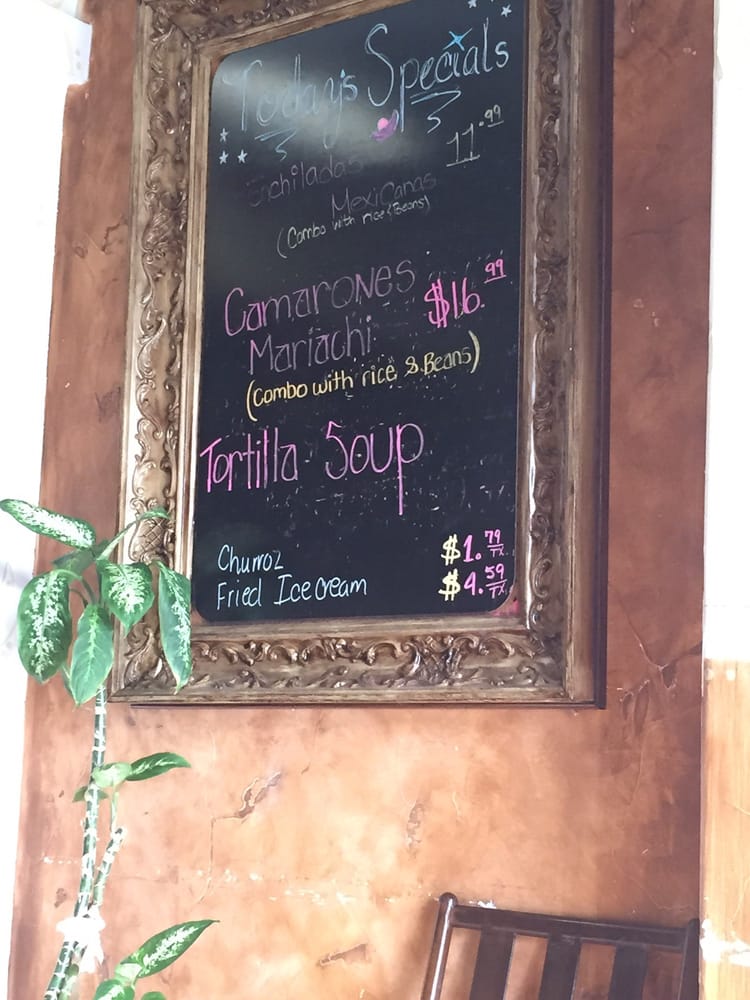 Today's Specials
Enchiladas 11.99
Mexicanas
(Combo with rice & Beans)
Camarones $16.99
Mariachi
(Combo with rice & Beans)
Tortilla Soup
Churroz $1.79/TX
Fried Ice cream $4.59/TX